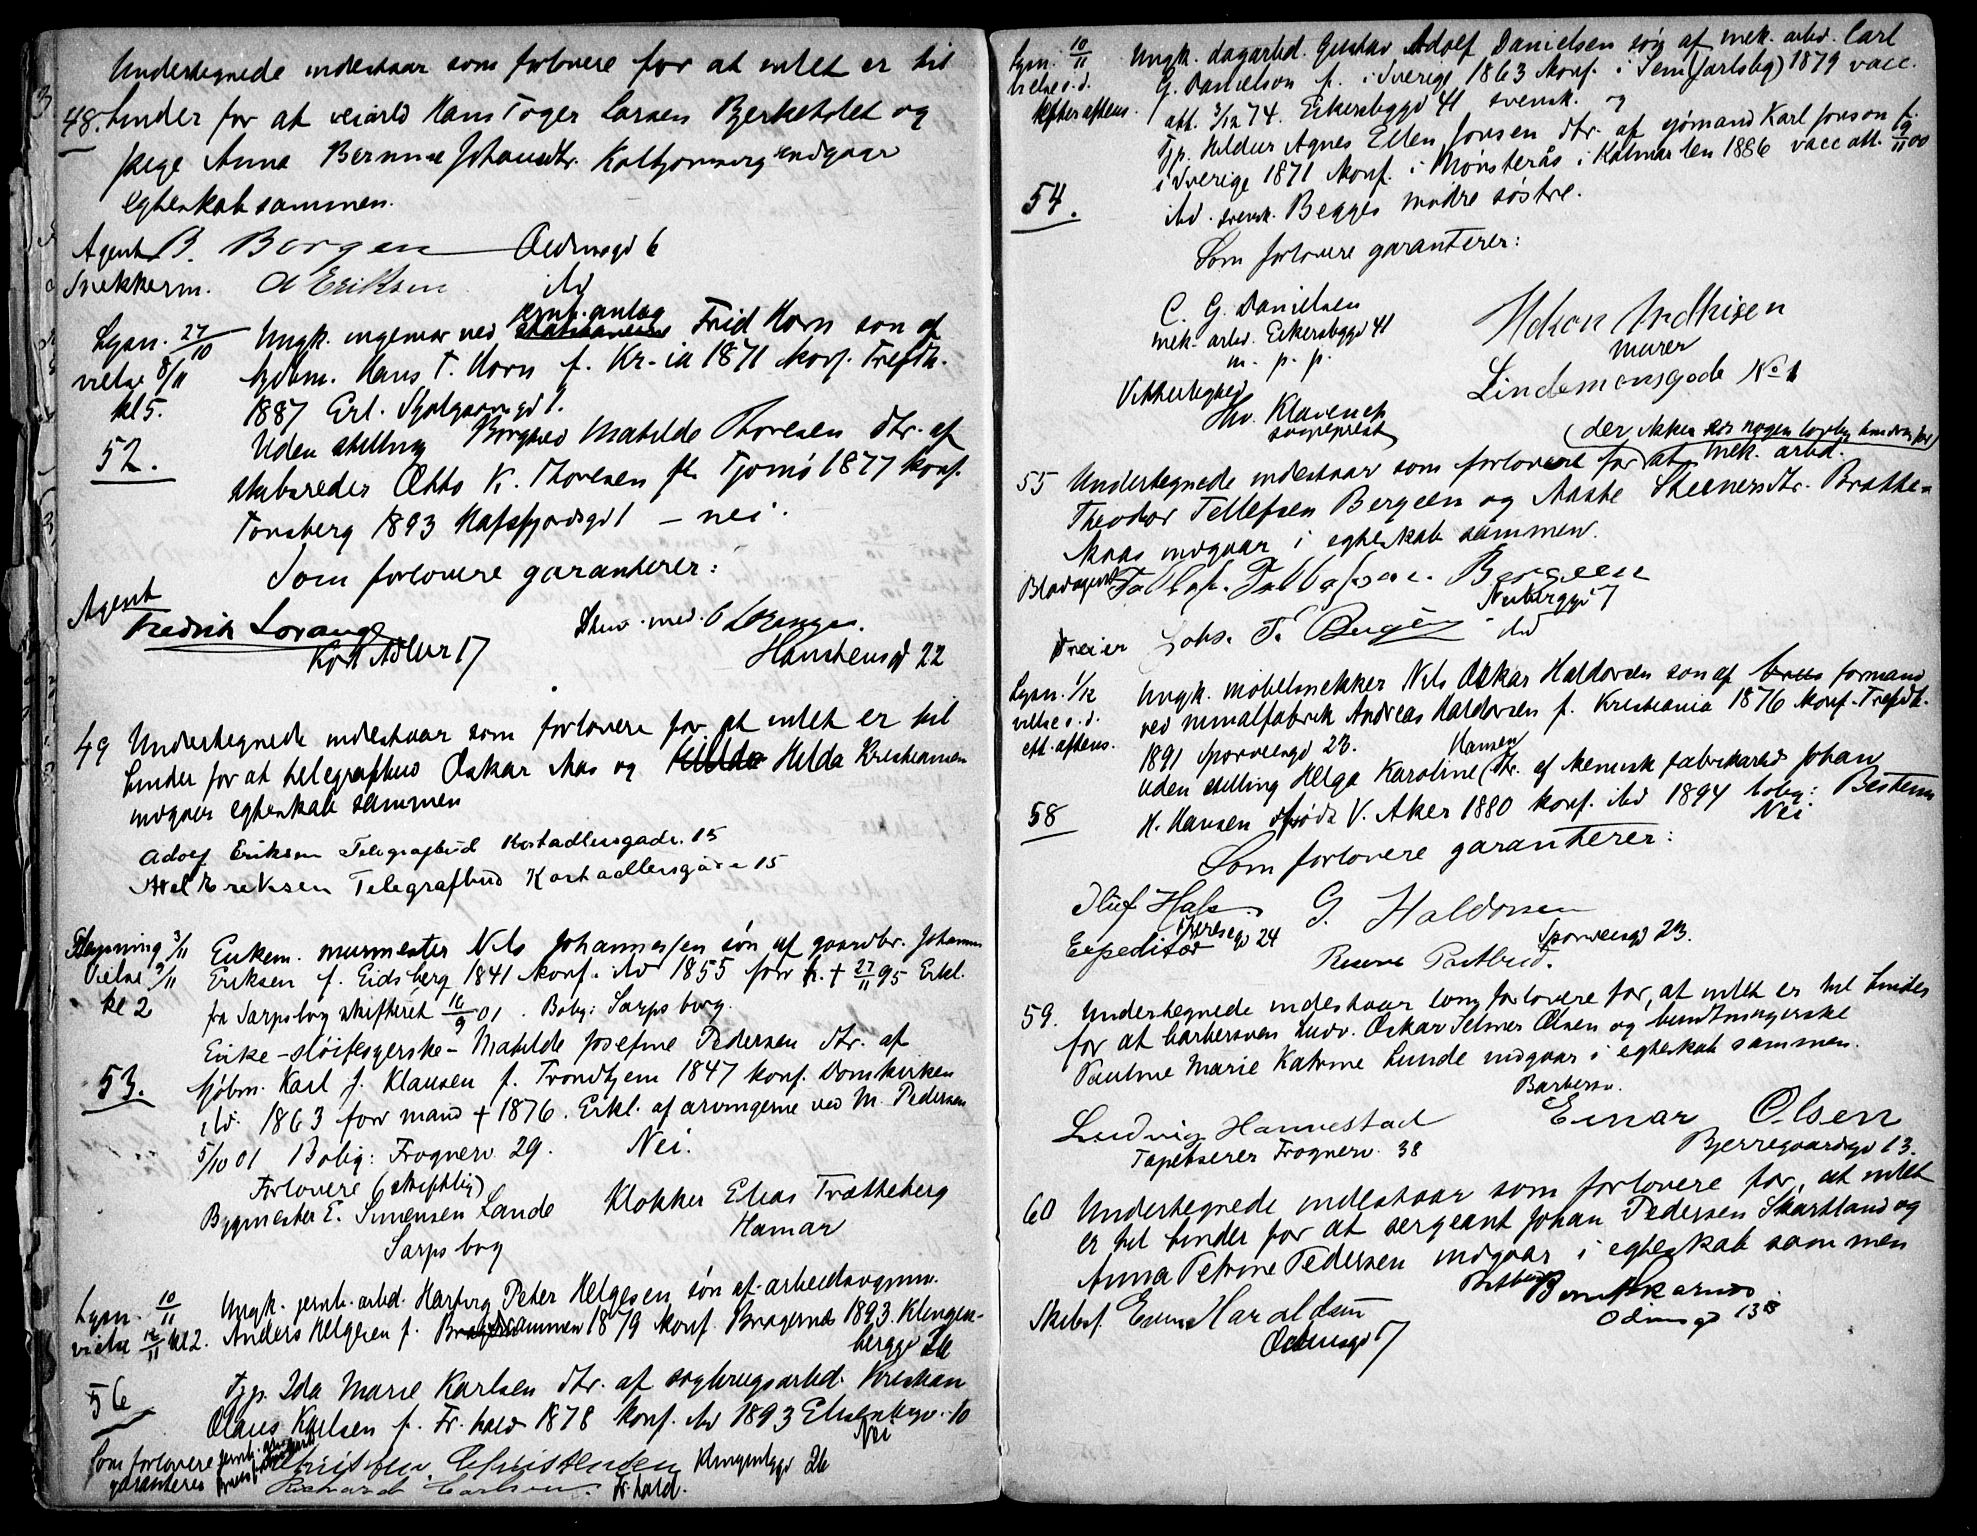 Undertegnede indestaar som forlovere for at intet er til
48. hinder for at veiarbd Hans Toger Larsen Bjerkeholet og
pige Anna Bernine Johansdtr. indgaar
egteskab sammen.
Agent B. Borgen Odinsgd 6
Snekkerm. A Eriksen ibd
Lysn. 27/10 Ungk. ingeniør ved jernb. anlæg Frid Horn søn af
vielse 8/11 kjøbm. Hans T. Horn f. Kr-ia 1871 konf. Trefdh.
kl 5. 1887 Erl. Skjalgssønsgd 1.
52. Uden stilling Borghild Matilde Thoresen dtr. af
skibsreder Otto K. Thoresen f. Tjømø 1877 konf.
Tønsberg 1893 Hafsfjordsgd 1 – nei.
Som forlovere garanterer:
Agent
Fredrik Lorange
Kort Adler 17
Stud. med. O Lorange.
Hanstensgd 22
49 Undertegnede indestaar som forlovere for at intet er til
hinder for at telegrafbud Oskar Aas og Hilda Kristiansen
indgaar egteskab sammen
Adolf Eriksen Telegrafbud Kortadlersgade. 15
Axel Eriksen Telegrafbud Kortadlersgade 15
Lysning 3/11 Enkem. murmester Nils Johannessen søn af gaardbr. Johannes
Vielse 9/11 Eriksen f. Eidsberg 1841 konf. ibd 1855 forr h. + 27/11 95 Erkl.
kl 2 fra Sarpsborg skifteret 16/9 01. Bolig: Sarpsborg.
Enke – sløifesyerske – Matilde Josefine Pedersen dtr. af
53. kjøbm. Karl J. Klausen f. Trondhjem 1847 konf. Domkirken
ibd. 1863 forr mand + 1876. Erkl. af arvingerne ved M. Pedersen
5/10 01 Bolig: Frognerv 29. Nei.
Forlovere (skriftlig)
Bygmester E. Simensen Lande Klokker Elias Trætteberg
Sarpsborg Hamar
Lysn. 10/11 Ungk. jernb. arbd. Hartvig Peter Helgesen søn af arbeidsognm.
vielse 16/11 kl 2. Anders Helgesen f. Drammen 1879 konf. Bragernes 1893. Klingen-
berggd 26
56 Tjp. Ida Marie Karlsen dtr. af sagbrugsarbd. Kristian
Olaus Karlsen f. Fr. hald 1878 konf. ibd 1893 10
Nei
Som forlovere Christian Christensen Klingenbggd 26
garanteres Richard Carlsen. Fr. hald.
Lysn. 10/11 Ungk. dagarbd. Gustav Adolf Danielsen søn af mek. arbd. Carl
vielse s. d. G. Danielson f. i Sverige 1863 konf. i Sem (Jarlsbg) 1879 vacc.
kefter aftens. att. 3/12 74. Eikersbyggd 41 svensk. og
Tjp. Hildur Agnes Ellen Jonsen dtr. af sjømand Karl Jonson f.
i Sverige 1871 konf. i Mønsterås i Kalmar len 1886 vacc att.
54. ibd. svensk. Begges mødre søstre.
Som forlovere garanterer:
C. G. Danielsen
mek. arbd. Eikersbyggd 41
m. p. p.
Vitterlighed
Thv. Klaveness
sogneprest
Håkon
murer
Lindemansgade No 1
(der ikken er nogen lovlig hindring for)
55 Undertegnede indestaar som forlovere for at mek. arbd.
Theodor Tellefsen Bergeen og Aaste Steenersdtr. Bratte-
aas indgaar i egteskab sammen.
Bladagent Tallaf. Tallafsen. Bergeen
Nubberggd 7
Dreier Johs. T. Bergén ibd
Lysn. 1/12 Ungk. møbelsnekker Nils Oskar Haldorsen søn af formand
vielse s. d. ved mineralfabrik Andreas Haldorsen f. Kristiania 1876 konf. Trefdh.
eft. aftens. 1891 Sporveisgd 23.
Uden stilling Helga Karoline Hansen dtr. af kemisk fabrikarbd Johan
58 H. Hansen født V. Aker 1880 konf. ibd 1894 bolig: Bestum
Nei
Som forlovere garanterer:
Oluf Hals G. Haldorsen
Theresegd 24 Sporveisgd 23.
Expeditør Reserve Postbud.
59. Undertegnede indestaar som forlovere for, at intet er til hinder
for at barbersvend Ludv. Oskar Selmer Olsen og buntmagerske
Pauline Marie Katrine Lunde indgaar i egteskab sammen.
Barbersv.
Ludvig Hannestad Einar Olsen
Tapetserer Frognerv. 38 Bjerregaardsgd 13.
60 Undertegnede indestaar som forlovere for, at intet
er til hinder for at sergeant Johan Pedersen Skartland og
Anna Petrine Pedersen indgaar i egteskab sammen
Haraldsen
Odinsgd 17
Odinsgd 13 B